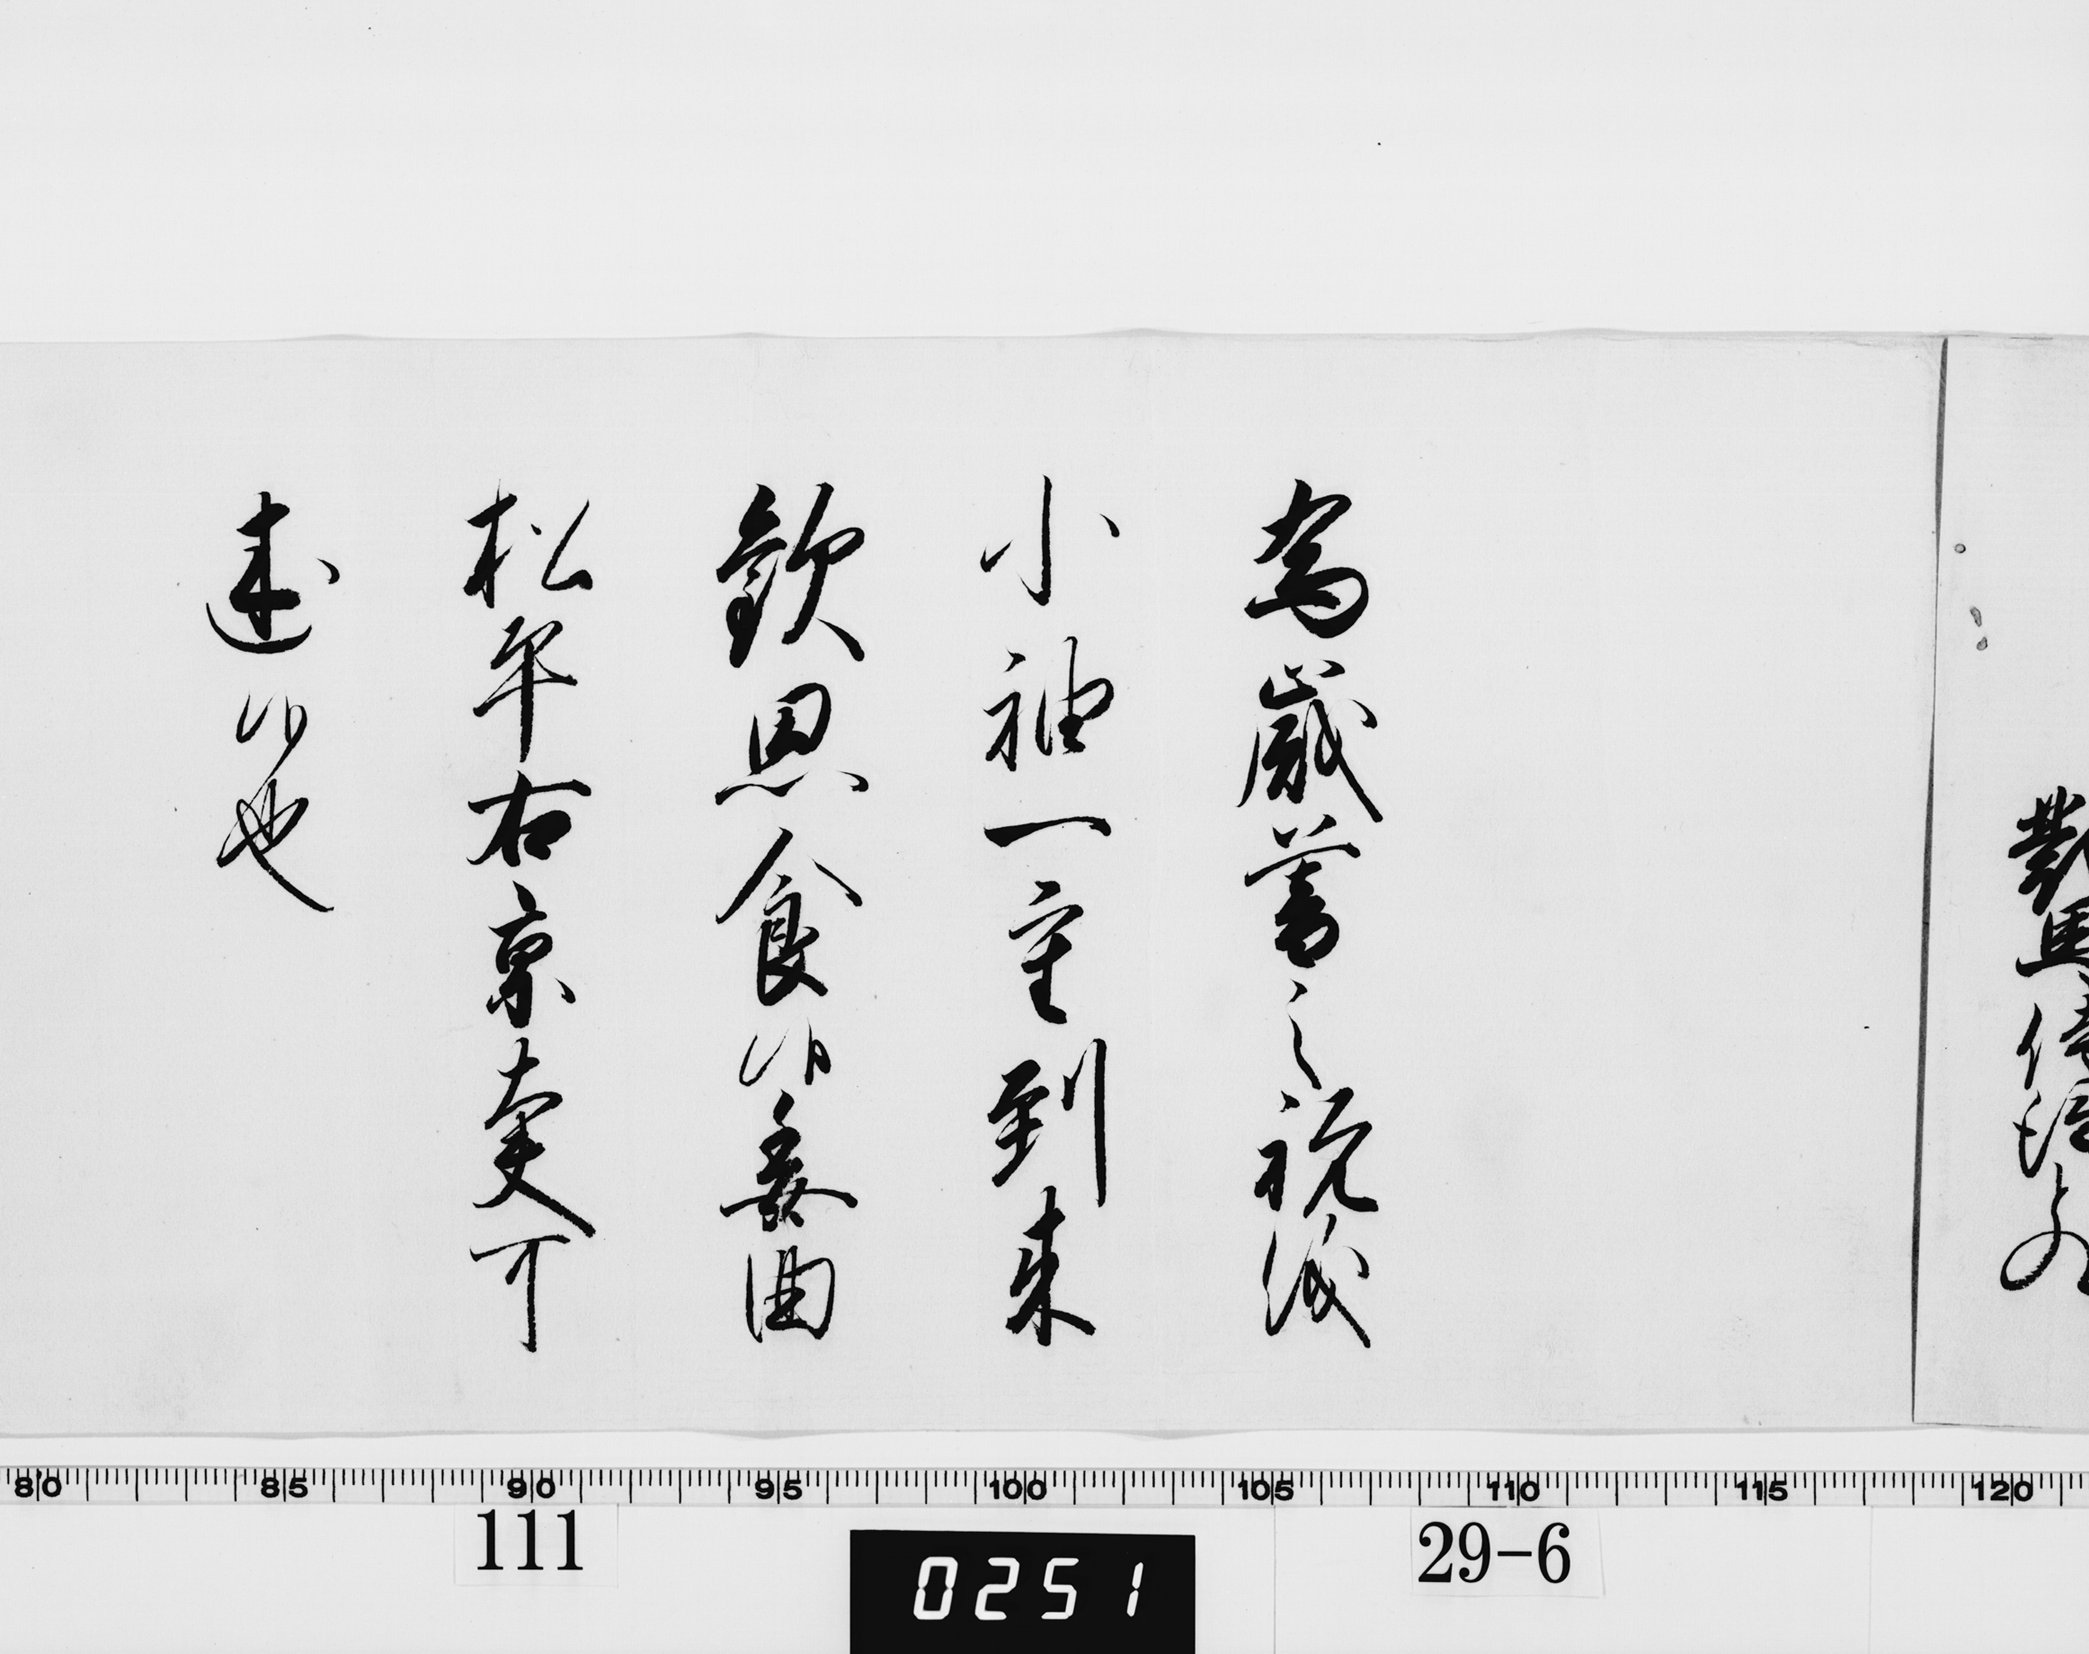 對馬侍従との
為歳暮之祝儀
小袖一重到来
歓思食候委曲
松平右京大夫可
述候也
80 85 90 95 100 105 110 115 120
111
0251
29-6